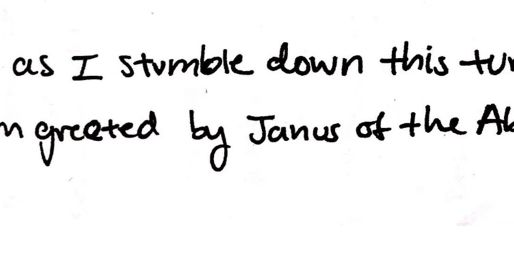 as I stumble down this
greeted by Janus of the